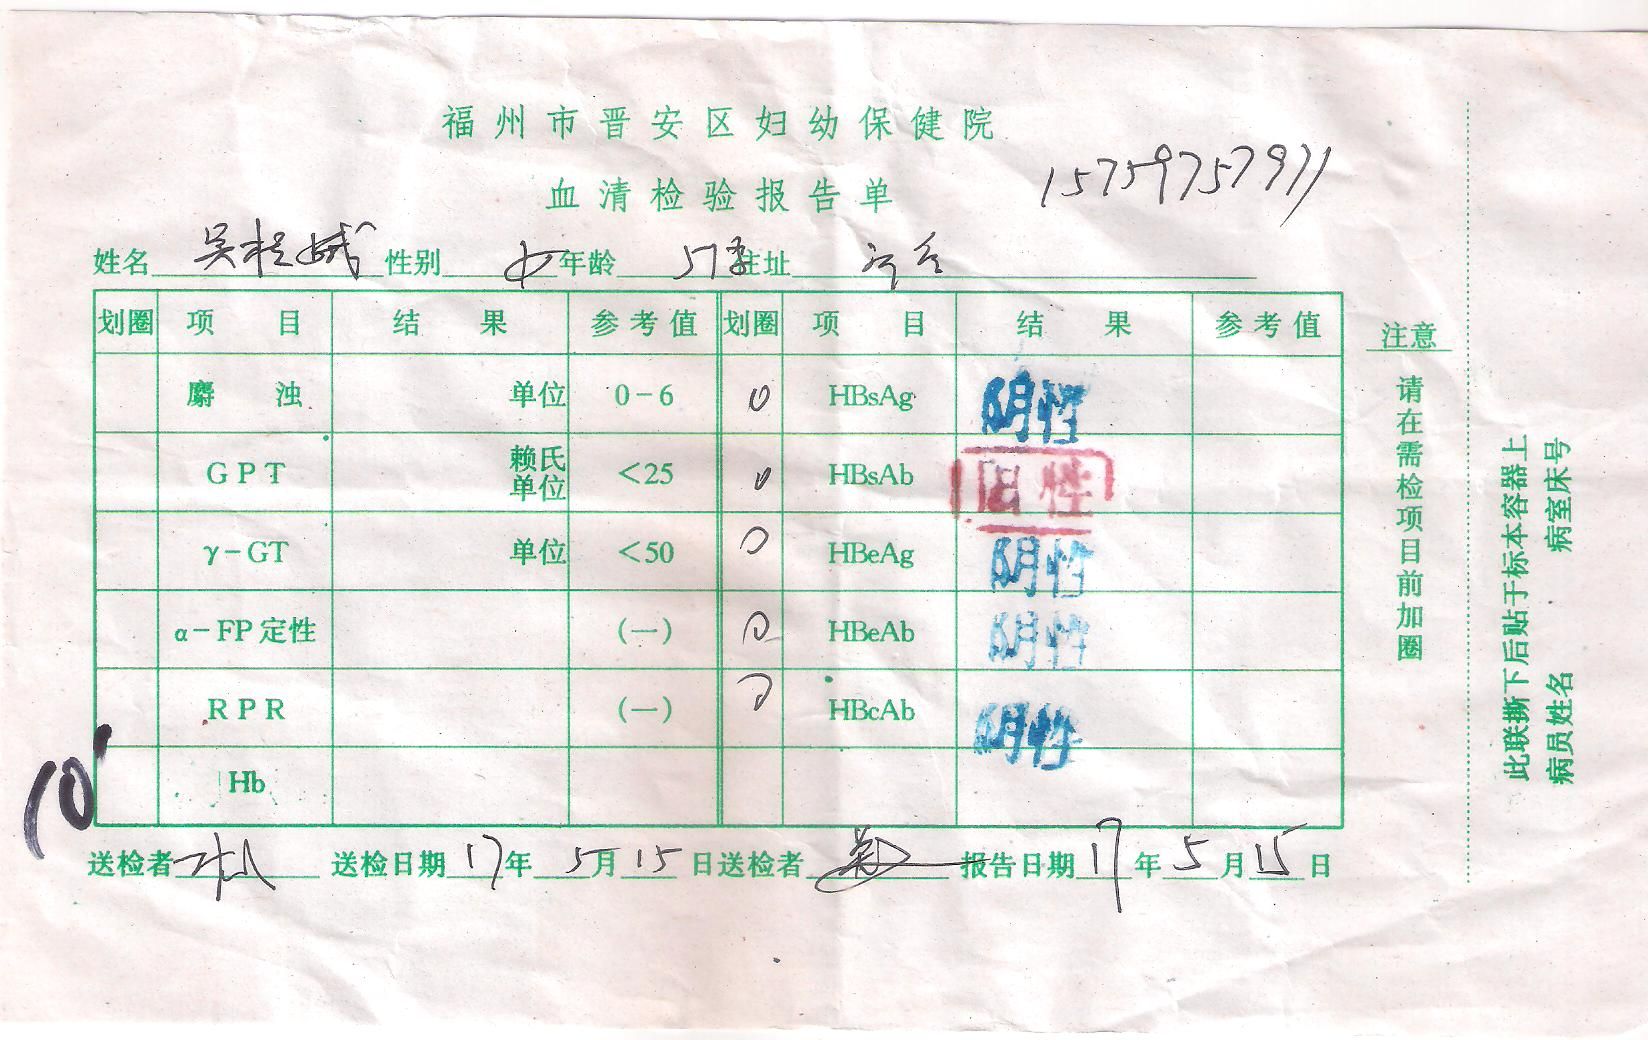 福州市晋安区妇幼保健院
血清检验报告单
15759757911
姓名 吴 性别 女 年龄 51岁 住址
划圈 项目 结果 参考值 划圈 项目 结果 参考值
麝浊 单位 0-6 0 HBsAg 阴性
GPT 赖氏单位 <25 0 HBsAb 阳性
γ-GT 单位 <50 0 HBeAg 阴性
α-FP定性 (一) 0 HBeAb 阴性
RPR (一) 0 HBcAb 阴性
Hb
10
送检者 送检日期 17年 5月 15日 送检者 报告日期 17年 5月 15日
注意
请在需检项目前加圈
此联撕下后贴于标本容器上
病员姓名 病室床号